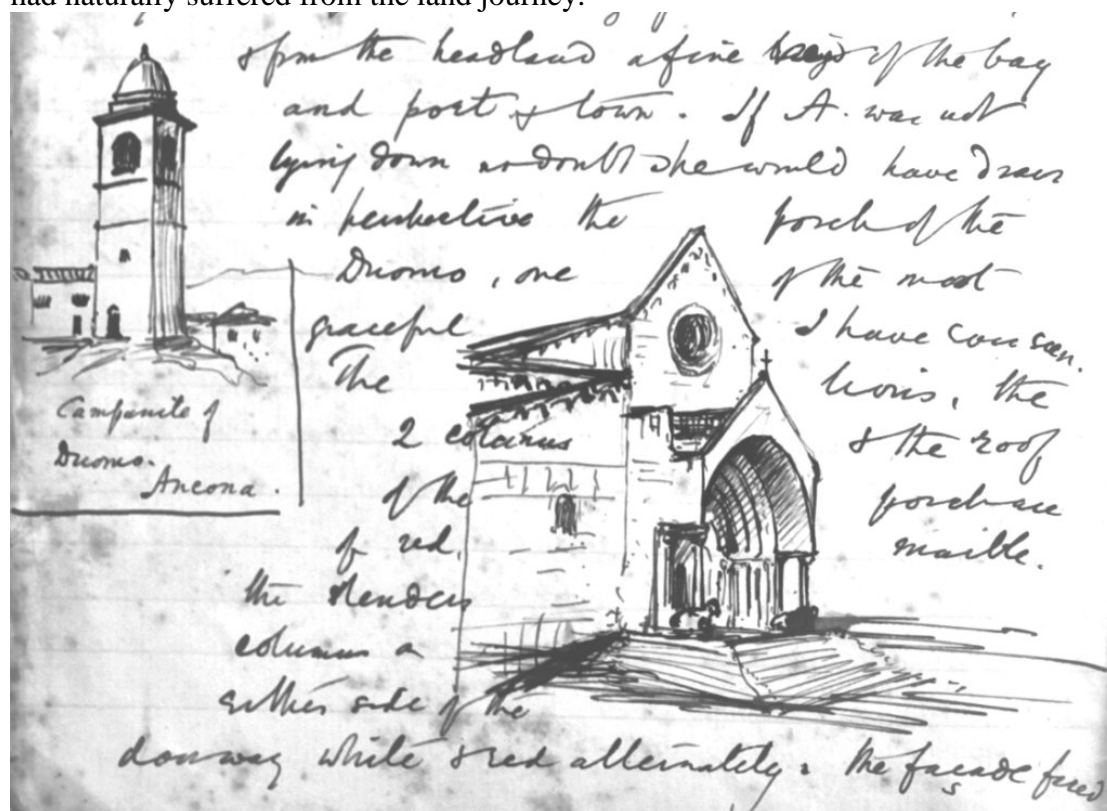 had naturally suffered from the land journey.
& from the headland a fine view of the bay
and port & town. If A. was not
lying down no doubt she would have drawn
in perspective the porch of the
Duomo, one of the most
graceful I have ever seen.
The lions, the
2 columns & the roof
of the porch are
of red marble.
the slender
columns on
either side of the
doorway white & red alternately. The façade faces
Campanile of
Duomo.
Ancona.